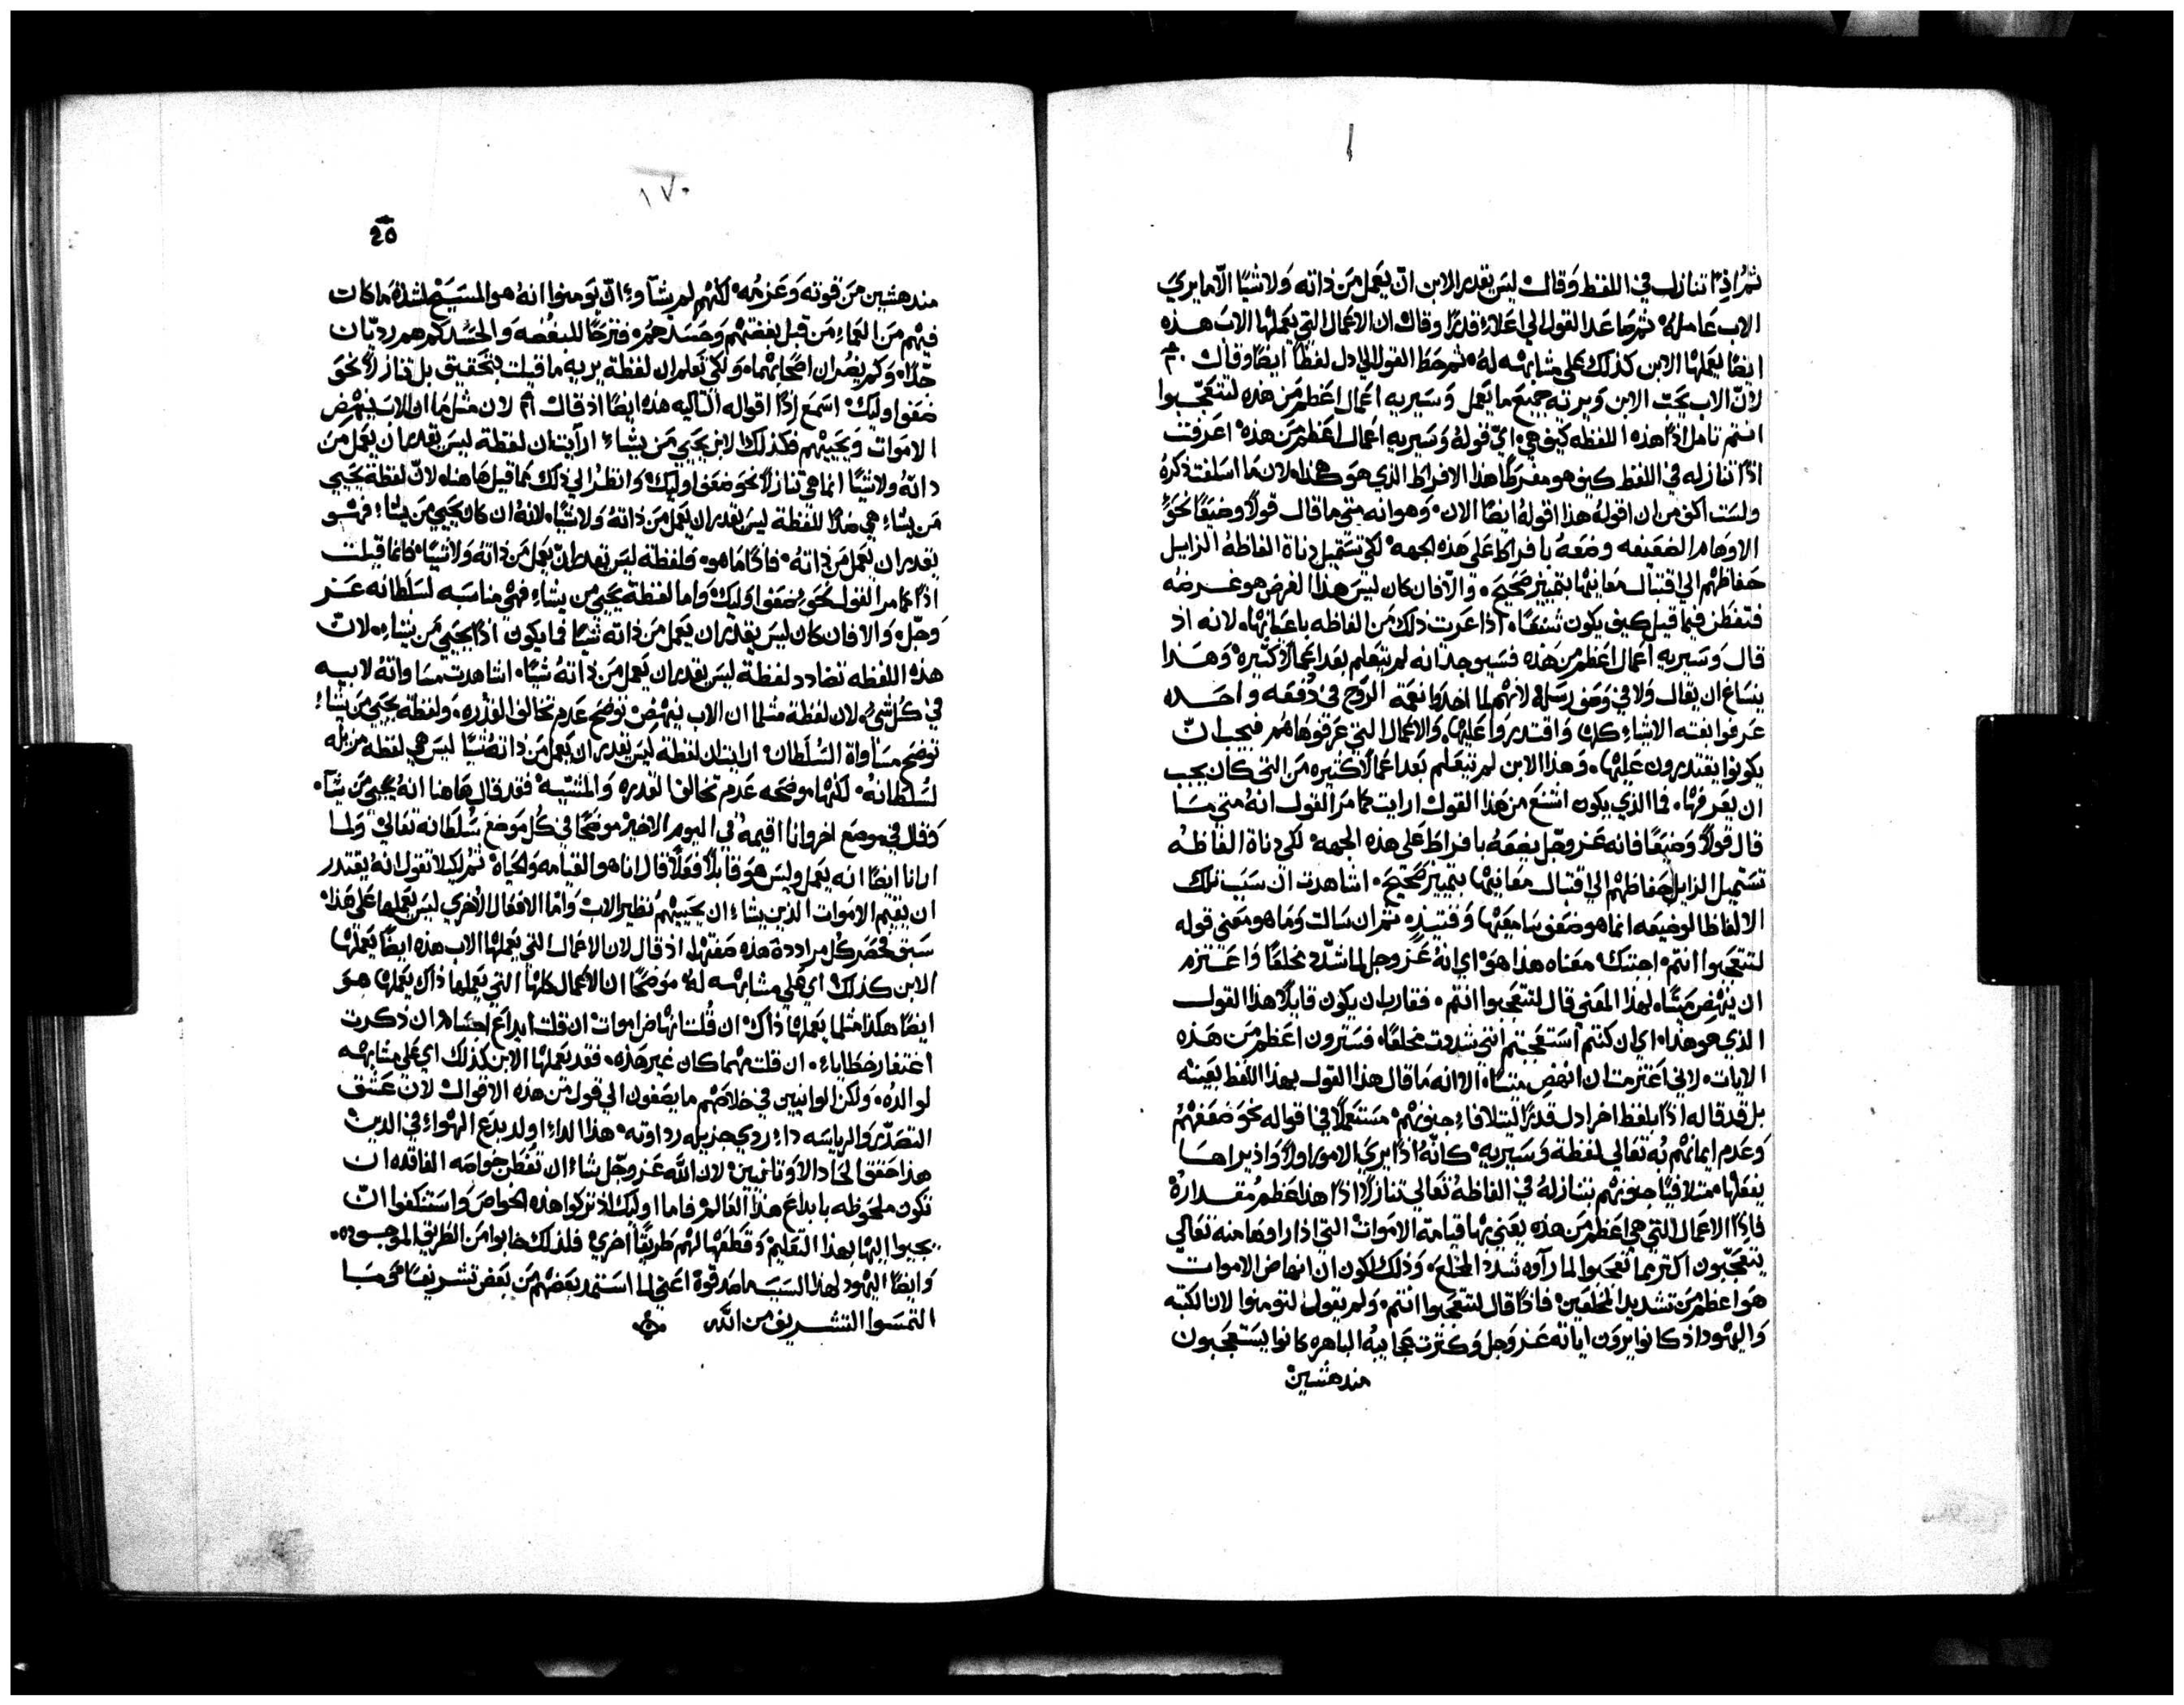 ثم اذًا تنازل في اللفظ وقال ليس يقدر الابن ان يعمل من ذاته ولا شيًا الّا ما يري
الاب عامله ثم صاعد القول الي اعلاء قدرًا وقال ان الاعمال التي يعملها الاب هذه
ايضًا يعملها الابن كذلك علي مشابهه له ثم حط القول الي ادل لفظًا ايضًا وقال
لانّ الاب يحب الابن ويريه جميع ما يعمل وسيريه اعمال اعظم من هذه لتتعجّبوا
انتم تامل اذًا هذه اللفظه كيف هي ايّ قوله وسيريه اعمال اعظم من هذه اعرفت
اذًا تنازله في اللفظ كيف هو مفرطًا هذا الافراط الذي هو هذا لان ما اسلفت ذكره
ولست اكف من ان اقوله هذا اقوله ايضًا الان وهو انه متي ما قال قولًا وضيعًا نحو
الاوهام الضعيفه وضعه بافراط علي هذه الجهه لكي تستميل دناة الفاظه الزايل
حفاظهم الي اقتبال معانيها بتمييز صحيح والّا فان كان ليس هذا الغرض هو غرضه
فتفطن فيما قيل كيف يكون شنعًا اذا عرت ذلك من الفاظه باعيانها لانه اذ
قال وسيريه اعمال اعظم من هذه فسيوجد انه لم يتعلم بعد اعمالًا كثيره وهذا
يساغ ان يقال ولا في وصف رسله لانهم لما اخذوا نعمة الروح في دفعه واحده
عرفوا بغته الاشياء كلها واقتدروا عليها والاعمال التي عرفوها هم فيجب انّ
يكونوا يقتدرون عليها وهذا الابن لم يتعلم بعد اعمالًا كثيره من التي كان يجب
ان يعرفها فما الذي يكون اشنع من هذا القول ارايت كما مر القول انه متي ما
قال قولًا وضيعًا فانه عز وجل يضعه بافراط علي هذه الجهه لكي دناة الفاظه
تستميل الزايل حفاظهم الي اقتبال معانيها بتمييز صحيح اشاهدت ان سبب تلك
الالفاظ الوضيعه انما هو ضعف سامعيها وقتيذٍ ثم ان سالت وما هو معني قوله
لتتعجبوا انتم اجبتك معناه هذا هو اي انه عز وجل لما شدّد مخلعًا واعتزم
ان ينهض ميتًا بهذا المعني قال لتتعجبوا انتم فقارب ان يكون قايلًا هذا القول
الذي هو هذا اي ان كنتم استعجبتم انني شددت مخلعًا فسترون اعظم من هذه
الايات لاني اعتزمت ان انهض ميتًا الا انه ما قال هذا القول بهذا اللفظ بعينه
بل قد قاله اذًا بلفظ اخر ادل قدرًا ليتلافاء جنونهم مستعملًا في اقواله نحو ضعفهم
وعدم ايمانهم به تعالي لفظة وسيريه كانه اذًا يري الامور اولًا واذ يراها
يفعلها متلافيًا جنونهم بتنازله في الفاظه تعالي تنازلًا اذًا هذا عظم مقداره
فاذًا الاعمال التي هي اعظم من هذه يعني بها قيامة الاموات التي اذا راوها منه تعالي
يتعجّبون اكثر مما تعجبوا لما رآوه شدد المخلع وذلك لكون ان انهاض الاموات
هو اعظم من تشديد المخلعين فاذًا قال لتتعجبوا انتم ولم يقول لتومنوا لان الكتبه
واليهود اذ كانوا يرون اياته عز وجل وكثرت عجايبه الباهره كانوا يستعجبون
مندهشين
١٧٠
مندهشين من قوته وعزمه لكنهم لم يشآوء انّ يومنوا انه هو المسيح لشدة ما كان
فيهم من العماء من قبل بغضتهم وحسدهم فترحًا للبغضه والحسد كم هم رديّان
جدًا وكم يضران اصحابهما ولكي تعلم ان لفظة يريه ما قيلت بتحقيق بل تنازلًا نحو
ضعف اوليك اسمع اذًا اقواله التاليه هذه ايضًا اذ قال لان مثل ما ان الاب ينهض
الاموات ويحييهم فكذلك الابن يحيي من يشاء ارايت ان لفظة ليس يقدر ان يعمل من
ذاته ولا شيًا انما هي تنازلًا نحو ضعف اوليك وانظر الي ذلك مما قيل هاهنا لانّ لفظة يحيي
من يشاء هي ضدًا للفظة ليس يقدر ان يعمل من ذاته ولا شيًا لانه ان كان يحيي من يشاء فهو
يقدر ان يعمل من ذاته فاذًا ما هو فلفظة ليس يقدر ان يعمل من ذاته ولا شيًا فانما قيلت
اذًا كما مر القول نحو ضعف اوليك واما لفظة يحيي من يشاء فهي مناسبه لسلطانه عز
وجلّ والا فان كان ليس يقدر ان يعمل من ذاته شيًا فما يكون اذًا يحيي من يشاء لان
هذه اللفظه تضادد لفظة ليس يقدر ان يعمل من ذاته شيًا اشاهدت مساواته لابيه
في كل شيء لان لفظة مثلما ان الاب ينهض توضح عدم تخالف القدره ولفظة يحيي من يشاء
توضح مساواة السلطان ارايت ان لفظة ليس يقدر ان يعمل من ذاته شيًا ليس هي لفظه مزيله
لسلطانه لكنها موضحه عدم تخالف القدره والمشيّه فقد قال هاهنا انه يحيي من يشآء
وقال في موضع اخر وانا اقيمه في اليوم الاخير موضحًا في كل موضع سلطانه تعالي ولما
ارانا ايضًا انه يعمل وليس هو قابلًا فعلًا قال انا هو القيامه والحياة ثم لكيلا تقول انه يقتدر
ان يقيم الاموات الذين يشاء ان يحييهم نظير الاب وامّا الافعال الاخري ليس يعملها علي هذا
سبق فحصر كل مراددة هذه صفتها اذ قال لان الاعمال التي يعملها الاب هذه ايضًا يعملها
الابن كذلك اي علي مشابهه له موضحًا ان الاعمال كلها التي يعملها ذاك يعملها هو
ايضًا هكذا مثلما يعملها ذاك ان قلت انهاض اموات ان قلت ابداع اجسام ان ذكرت
اغتفار خطاياء ان قلت مهما كان غير هذه فقد يعملها الابن كذلك اي علي مشابهه
لوالده ولكن الوانيين في خلاصهم ما يصغون الي قول من هذه الاقوال لان عشق
التصدّر والرياسه داء ردي جزيله رداوته هذا الداء اولد بدع الهواء في الدين
هذا حقق الحاد الاوثانيين لان اللّه عز وجل شاء ان تفطن خواصه الفاقده ان
تكون ملحوظه بابداع هذا العالم فاما اوليك اذ تركوا هذه الخواص واستنكفوا انّ
يجيوا اليها بهذا التعليم وقطعوا لهم طريقًا اخري فلذلك خابوا من الطريق الموجوده
وايضًا اليهود لهذا السبب ما صدقوه اعني لما استمد بعضهم من بعض تشريفًا وما
التمسوا التشريف من اللّه